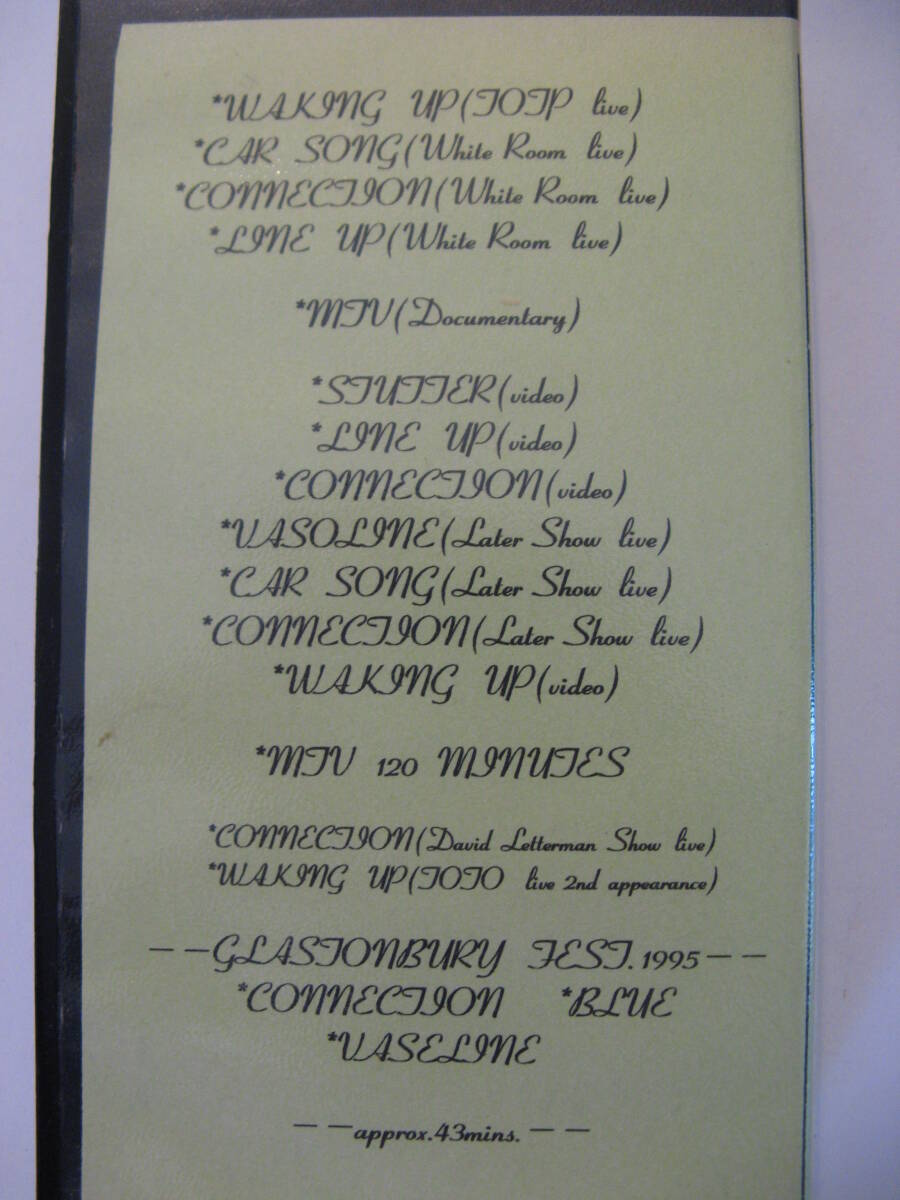 *WAKING UP(TOTP live)
*CAR SONG(White Room live)
*CONNECTION(White Room live)
*LINE UP(White Room live)
*MTV(Documentary)
*STUTTER(video)
*LINE UP(video)
*CONNECTION(video)
*VASOLINE(Later Show live)
*CAR SONG(Later Show live)
*CONNECTION(Later Show live)
*WAKING UP(video)
*MTV 120 MINUTES
*CONNECTION(David Letterman Show live)
*WAKING UP(TOTO live 2nd appearance)
——GLASTONBURY FEST.1995——
*CONNECTION *BLUE
*VASELINE
——approx.43mins.——